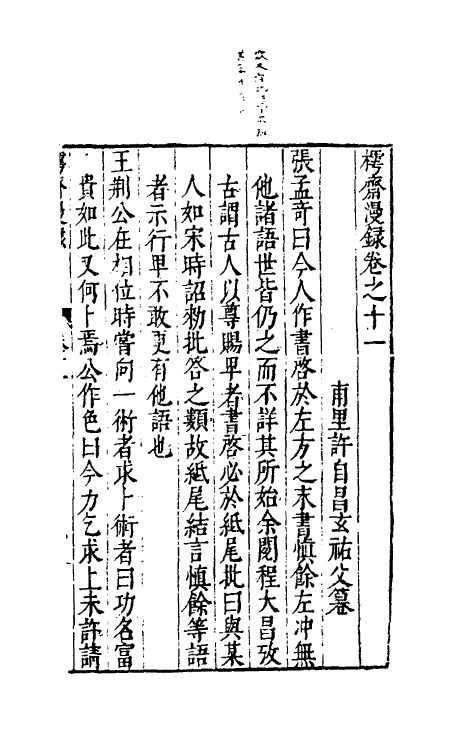 樗齋漫録卷之十一
甫里許自昌玄祐父纂
張孟奇曰今人作書啓於左方之末書慎餘左冲無
他諸語世皆仍之而不詳其所始余閱程大昌攷
古謂古人以尊賜卑者書啓必於紙尾批曰與某
人如宋時詔勑批答之類故紙尾結言慎餘等語
者示行卑不敢更有他語也
王荆公在相位時嘗問一術者求卜術者曰功名富
貴如此又何卜焉公作色曰今力乞求上未許請
樗齋漫録